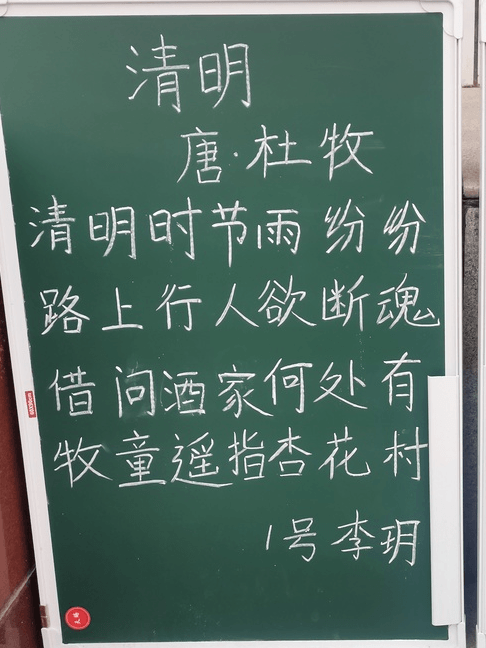 清明
唐·杜牧
清明时节雨纷纷
路上行人欲断魂
借问酒家何处有
牧童遥指杏花村
1号李玥